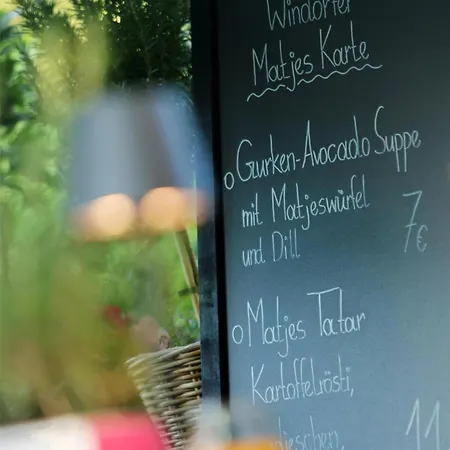 Windorfer
Matjes Karte
Gurken-Avocado Suppe
mit Matjeswürfel 7
und Dill €
Matjes Tatar
Kartoffelrösti,
11